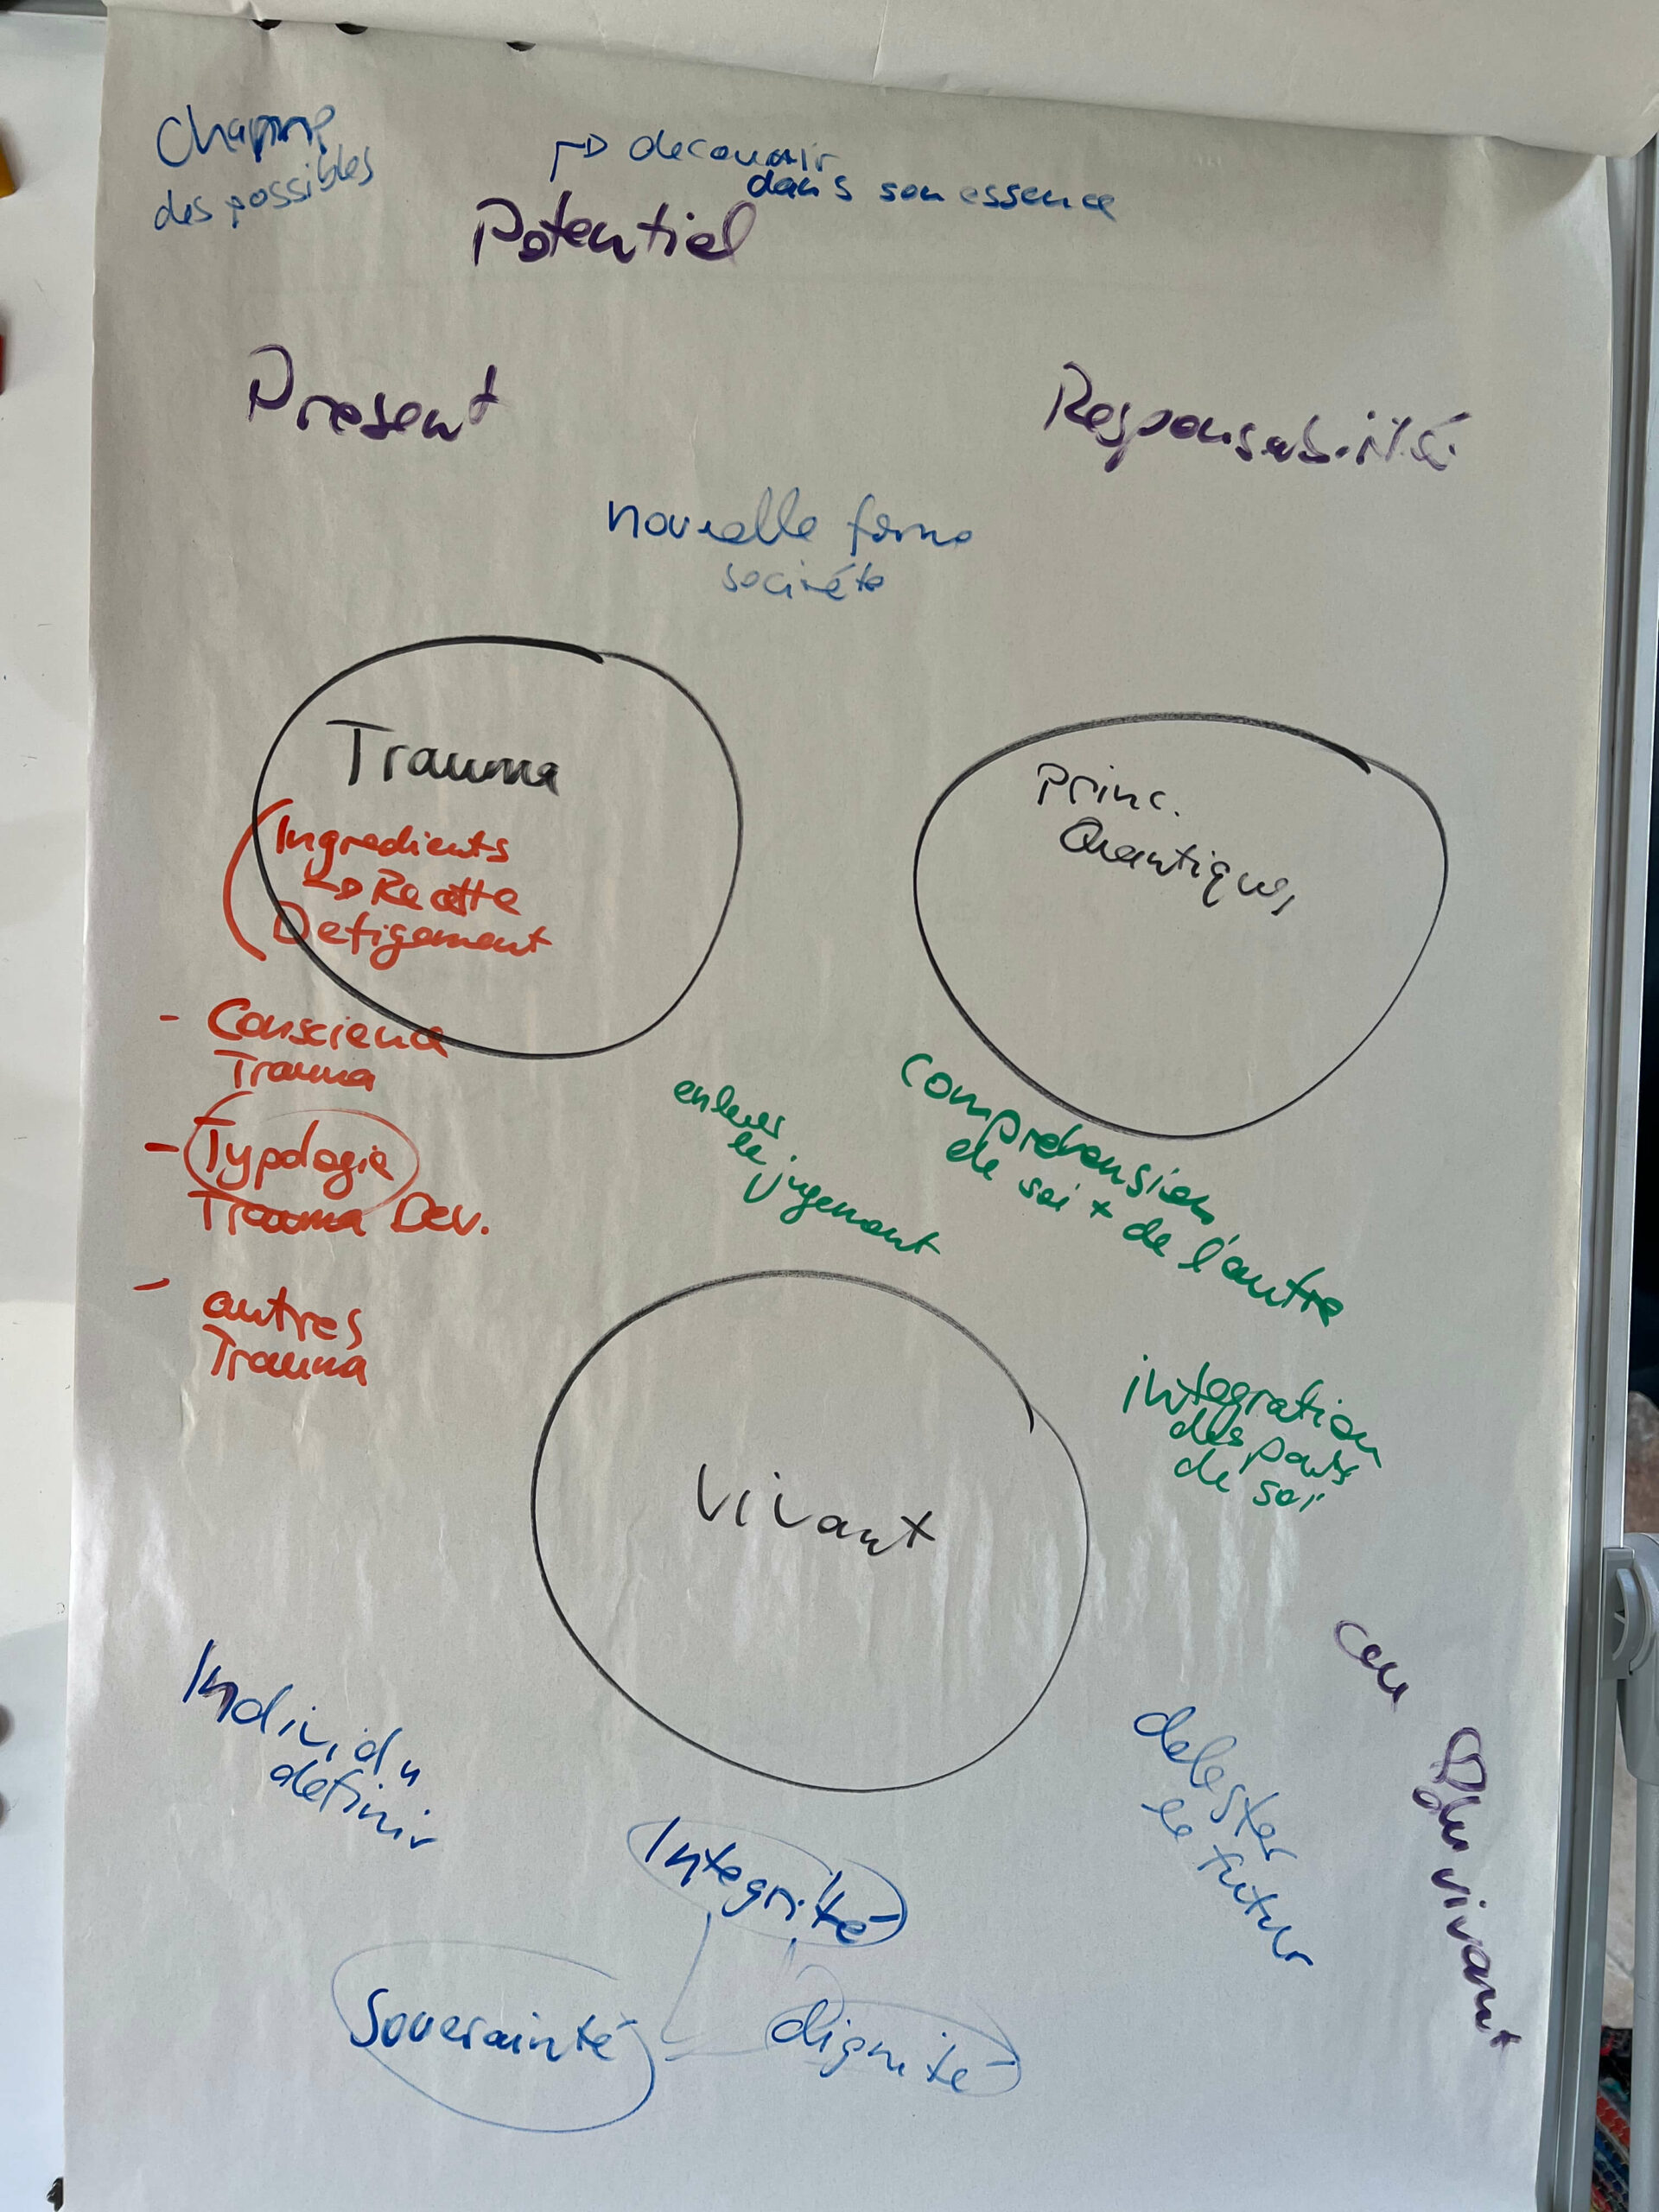 des possibles
↳ decouvrir
dans son essence
Potentiel
Present
Responsabilité
nouvelle forme
société
Trauma
Ingredients
↳ Recette
Defigement
Princ.
Quantiques
- Conscience
Trauma
- Typologie
Trauma Dev.
- autres
Trauma
enlever
le jugement
comprehension
de soi + de l'autre
integration
des parts
de soi
Vivant
Individu
définir
delester
le futur
au ♡
du vivant
Integrité
Souverainté
dignité